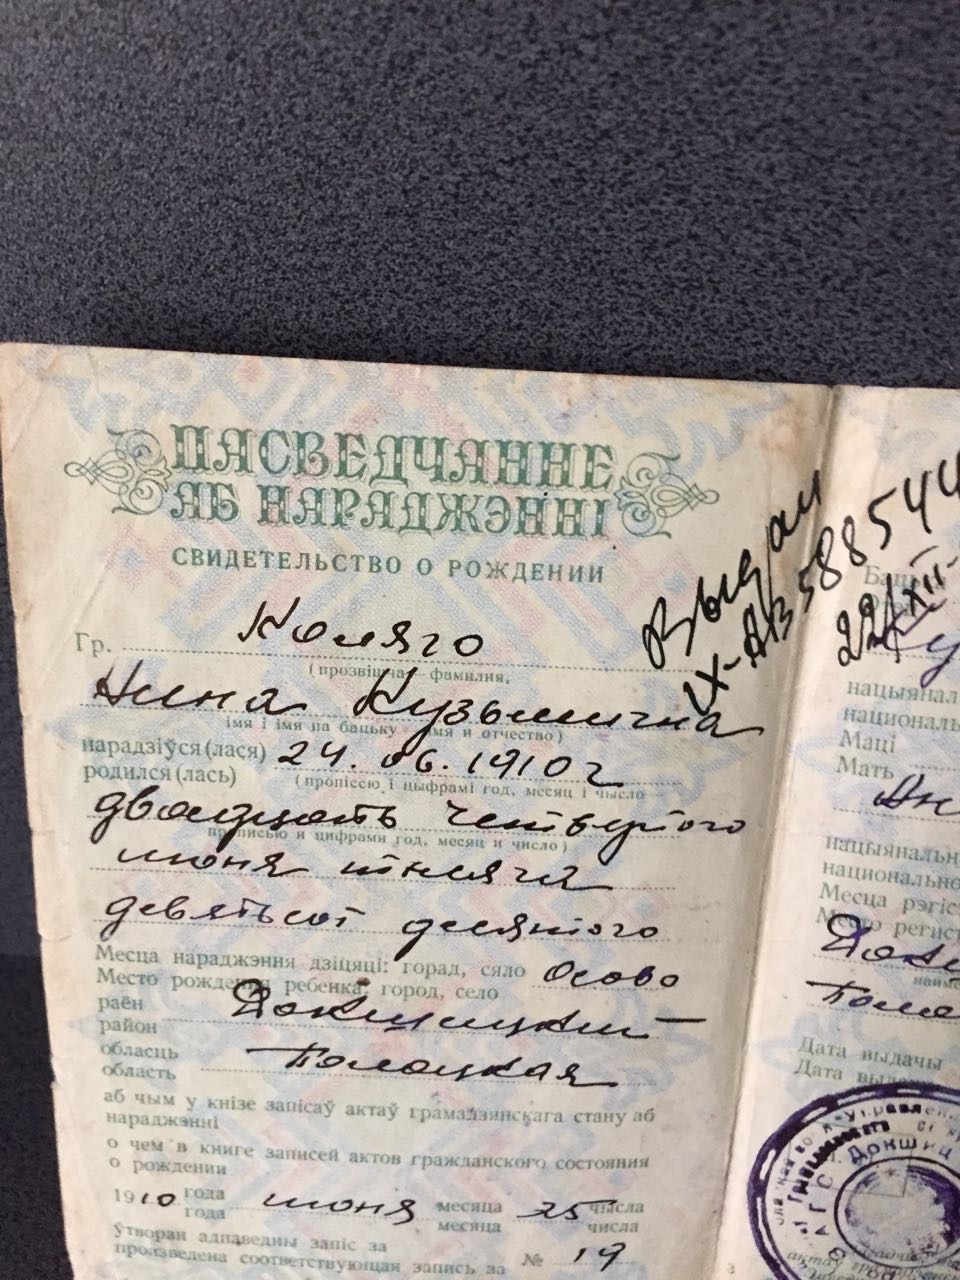 ПАСВЕДЧАННЕ
АБ НАРАДЖЭННІ
СВИДЕТЕЛЬСТВО О РОЖДЕНИИ
Выдан
IX-АВ 588544
22/XII-
Гр. Коляго
(прозвішча — фамилия,
Нина Кузьминична
імя і імя па бацьку — имя и отчество)
нарадзіўся(лася) 24. 06. 1910 г
родился(лась)
(пропіссю і цыфрамі год, месяц і чысло
двадцать четвертого
прописью и цифрами год, месяц и число)
июня тысяча
девятьсот десятого
Месца нараджэння дзіцяці: горад, сяло Осово
Место рождения ребенка: город, село
раён Докшицкий
район
обласць Полоцкая
область
аб чым у кнізе запісаў актаў грамадзянскага стану аб
нараджэнні
о чем в книге записей актов гражданского состояния
о рождении
1910 года июня месяца 25 чысла
года месяца числа
ўтворан адпаведны запіс за
произведена соответствующая запись за № 19
Бац
Ку
нацыянал
националь
Маці
Мать
Ан
нацыянальн
национально
Месца рэгіс
Место регист
Докш
наиме
Поло
Дата выдачы
Дата выда
ЗАГС Докшиц
Управлен